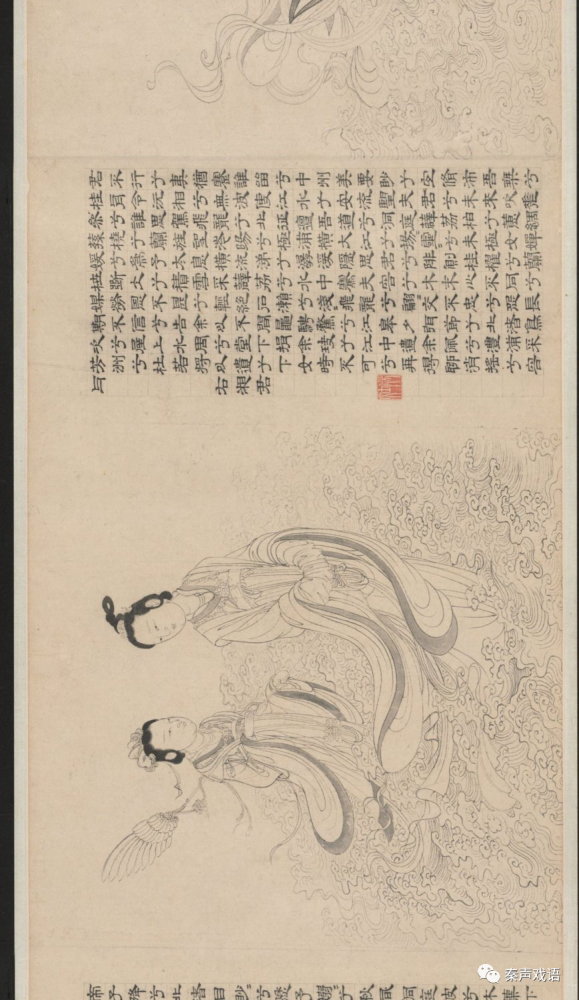 君不行兮夷猶蹇誰留兮中洲美要眇兮宜修沛吾乘兮
桂舟令沅湘兮無波使江水兮安流望夫君兮未來吹
參差兮誰思駕飛龍兮北征邅吾道兮洞庭薜荔柏兮蕙綢
蓀橈兮蘭旌望涔陽兮極浦橫大江兮揚靈揚靈兮未極女嬋
媛兮為余太息橫流涕兮潺湲隱思君兮陫側桂櫂兮蘭
枻斲冰兮積雪采薜荔兮水中搴芙蓉兮木末心不同兮
媒勞恩不甚兮輕絕石瀨兮淺淺飛龍兮翩翩交不忠兮怨長
期不信兮告余以不閒朝騁騖兮江皋夕弭節兮北渚鳥次兮
屋上水周兮堂下捐余玦兮江中遺余佩兮澧浦采
芳洲兮杜若將以遺兮下女時不可兮再得聊逍遙兮容
與
帝子降兮北渚目眇眇兮愁予嫋嫋兮秋風洞庭波兮木葉下
秦声戏语